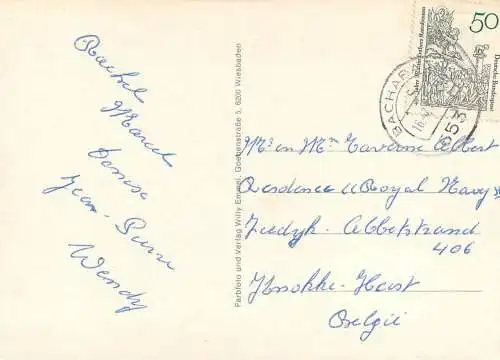 Rachel
Marcel
Denise
Jean-Pierre
Wendy
Farbfoto und Verlag Willy Enge, Goebenstraße 5, 6200 Wiesbaden
50
Deutsche Bundespost
BACHAR
6533
Mr en Mm Taverne Albert
Residence Royal Navy
Zeedijk-Albertstrand
406
Knokke-Heist
België